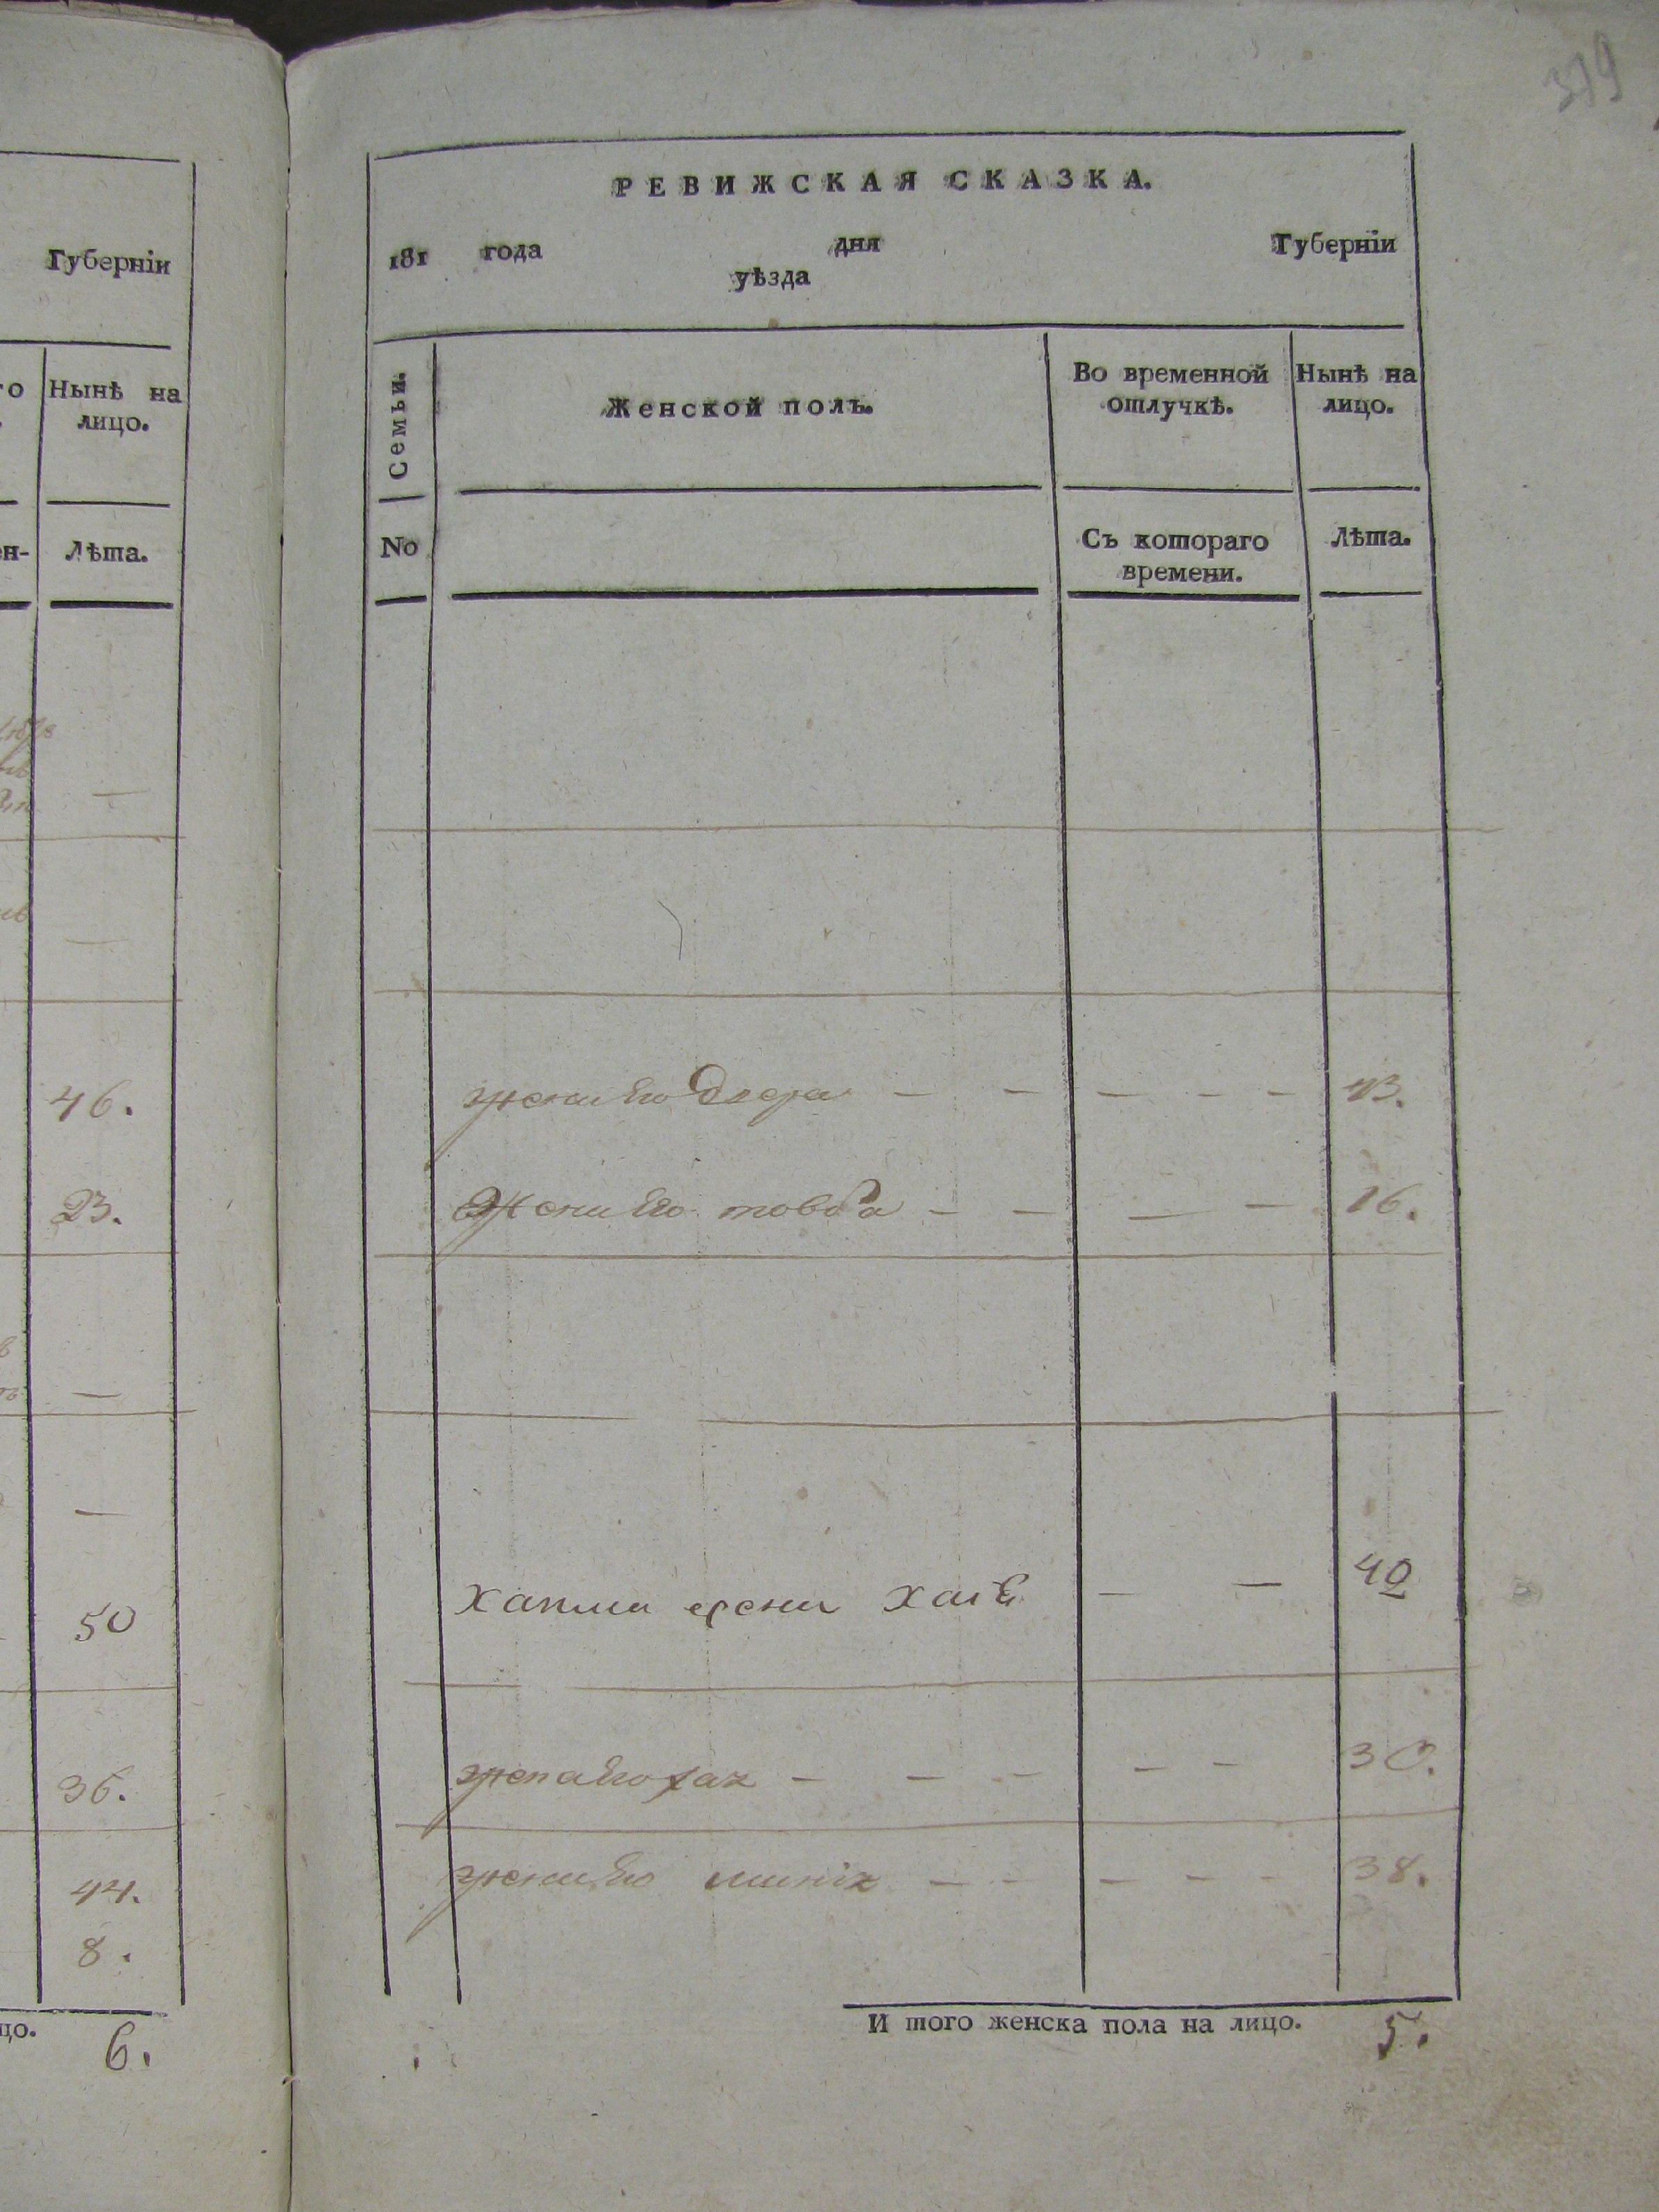 Губерніи
Нынѣ на
лицо.
Лѣта.
46.
23.
50
36.
44.
8.
6.
379
РЕВИЖСКАЯ СКАЗКА.
181 года дня Губерніи
уѣзда
Семьи.
Женской полъ.
Во временной
отлучкѣ.
Нынѣ на
лицо.
No
Съ котораго
времени.
Лѣта.
жена его — — — — — 43.
Жена его товба — — — — 16.
жени Хаıе — — 40
жена его — — — — — 30.
жена его — — — — — 38.
И того женска пола на лицо. 5.